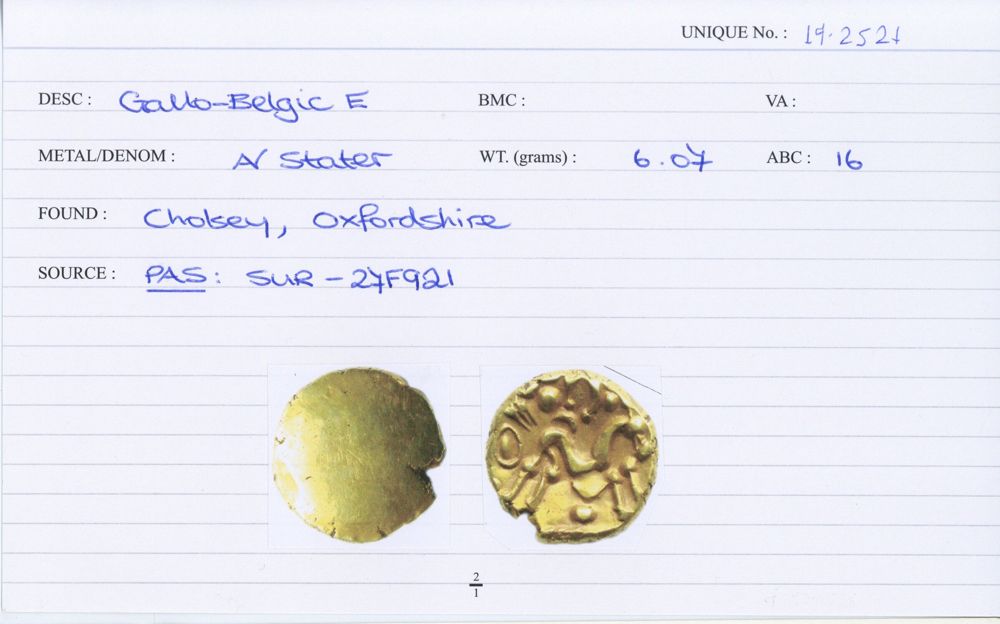 UNIQUE No. : 19.2521
DESC : Gallo-Belgic E BMC : VA :
METAL/DENOM : AV Stater WT. (grams) : 6.07 ABC : 16
FOUND : Cholsey, Oxfordshire
SOURCE : PAS: SUR-27F921
2
1